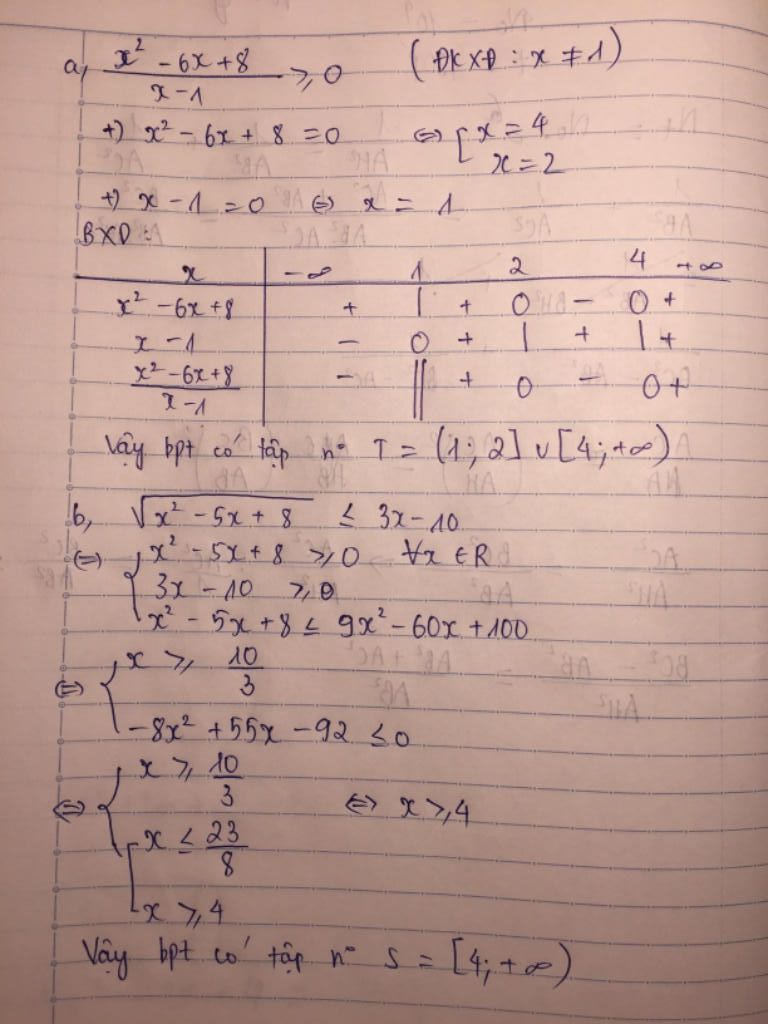 a, x² - 6x + 8 / x - 1 ⩾ 0 (ĐKXĐ : x ≠ 1)
+) x² - 6x + 8 = 0 ⇔ [ x = 4
x = 2
+) x - 1 = 0 ⇔ x = 1
BXD :
x -∞ 1 2 4 +∞
x² - 6x + 8 + | + 0 - 0 +
x - 1 - 0 + | + | +
x² - 6x + 8 / x - 1 - || + 0 - 0 +
Vậy bpt có tập n° T = (1; 2] ∪ [4; +∞)
b, √(x² - 5x + 8) ≤ 3x - 10
⇔ { x² - 5x + 8 ⩾ 0 ∀x ∈ R
3x - 10 ⩾ 0
x² - 5x + 8 ≤ 9x² - 60x + 100
⇔ { x ⩾ 10/3
-8x² + 55x - 92 ≤ 0
⇔ { x ⩾ 10/3 ⇔ x ⩾ 4
[ x ≤ 23/8
x ⩾ 4
Vậy bpt có tập n° S = [4; +∞)